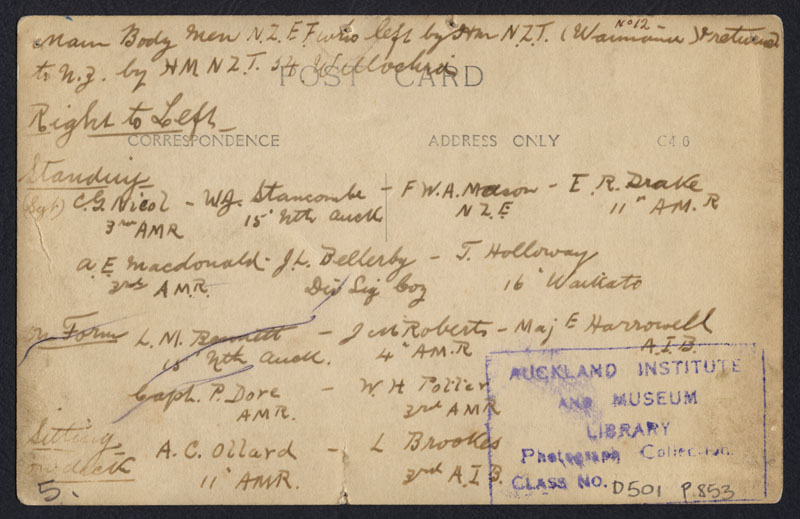 Main Body men N.Z.E.F. who left by HM N.Z.T. No 12 (Waimana) & returned
to N.Z. by HMNZT. 54 Willochra
POST CARD
Right to Left
CORRESPONDENCE ADDRESS ONLY C46
Standing
(Sgt) C.G. Nicol - W.J. Stancombe - F W.A. Mason - E. R. Drake
3rd AMR 15' Nth Auck N Z E 11" A M. R
A. E. Macdonald - J.L. Bellerby - T. Holloway
3rd AMR. Div Sig Coy 16' Waikato
on Form L. M. Bennett - J M Roberts - Maj E Harrowell
15' Nth Auck. 4" AM.R A.I.B.
Capt. P. Dore - W. H Potter
AMR. 3rd AMR
Sitting
on deck A. C. Ollard - L Brookes
11" AMR. 3rd A I B.
5.
AUCKLAND INSTITUTE
AND MUSEUM
LIBRARY
Photograph Collection
CLASS NO. D501 P.853